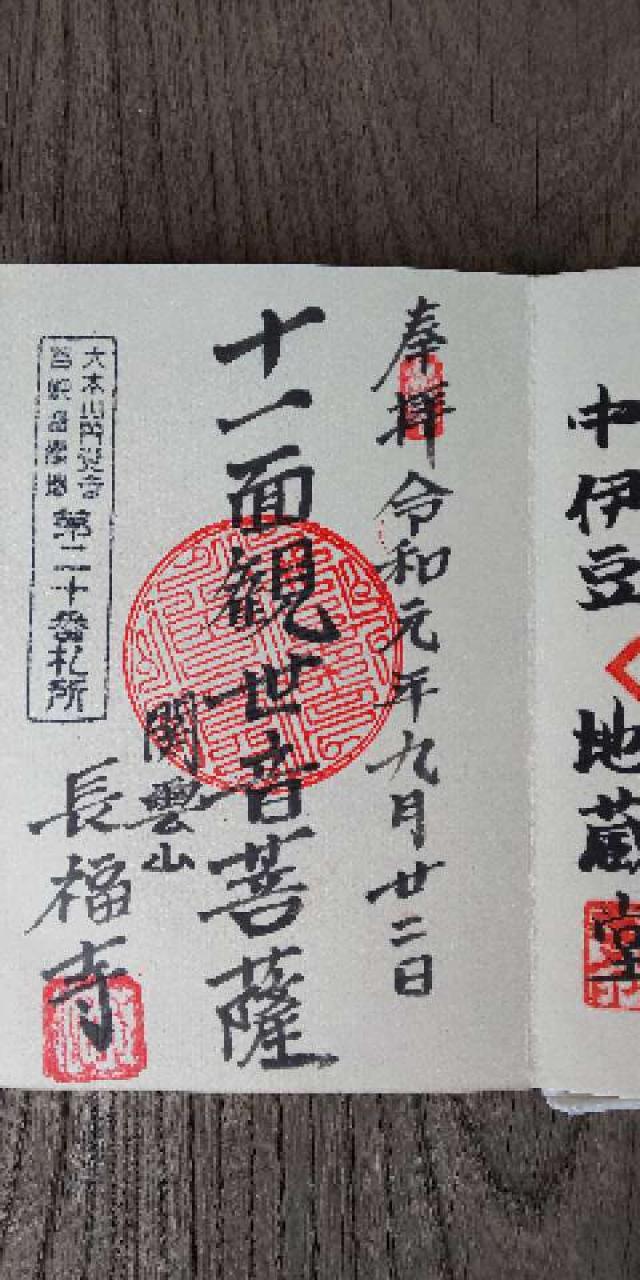 中伊豆
地蔵堂
奉拝 令和元年九月廿二日
十一面観世音菩薩
関雲山
長福寺
大本山円覚寺
百観音霊場
第二十番札所